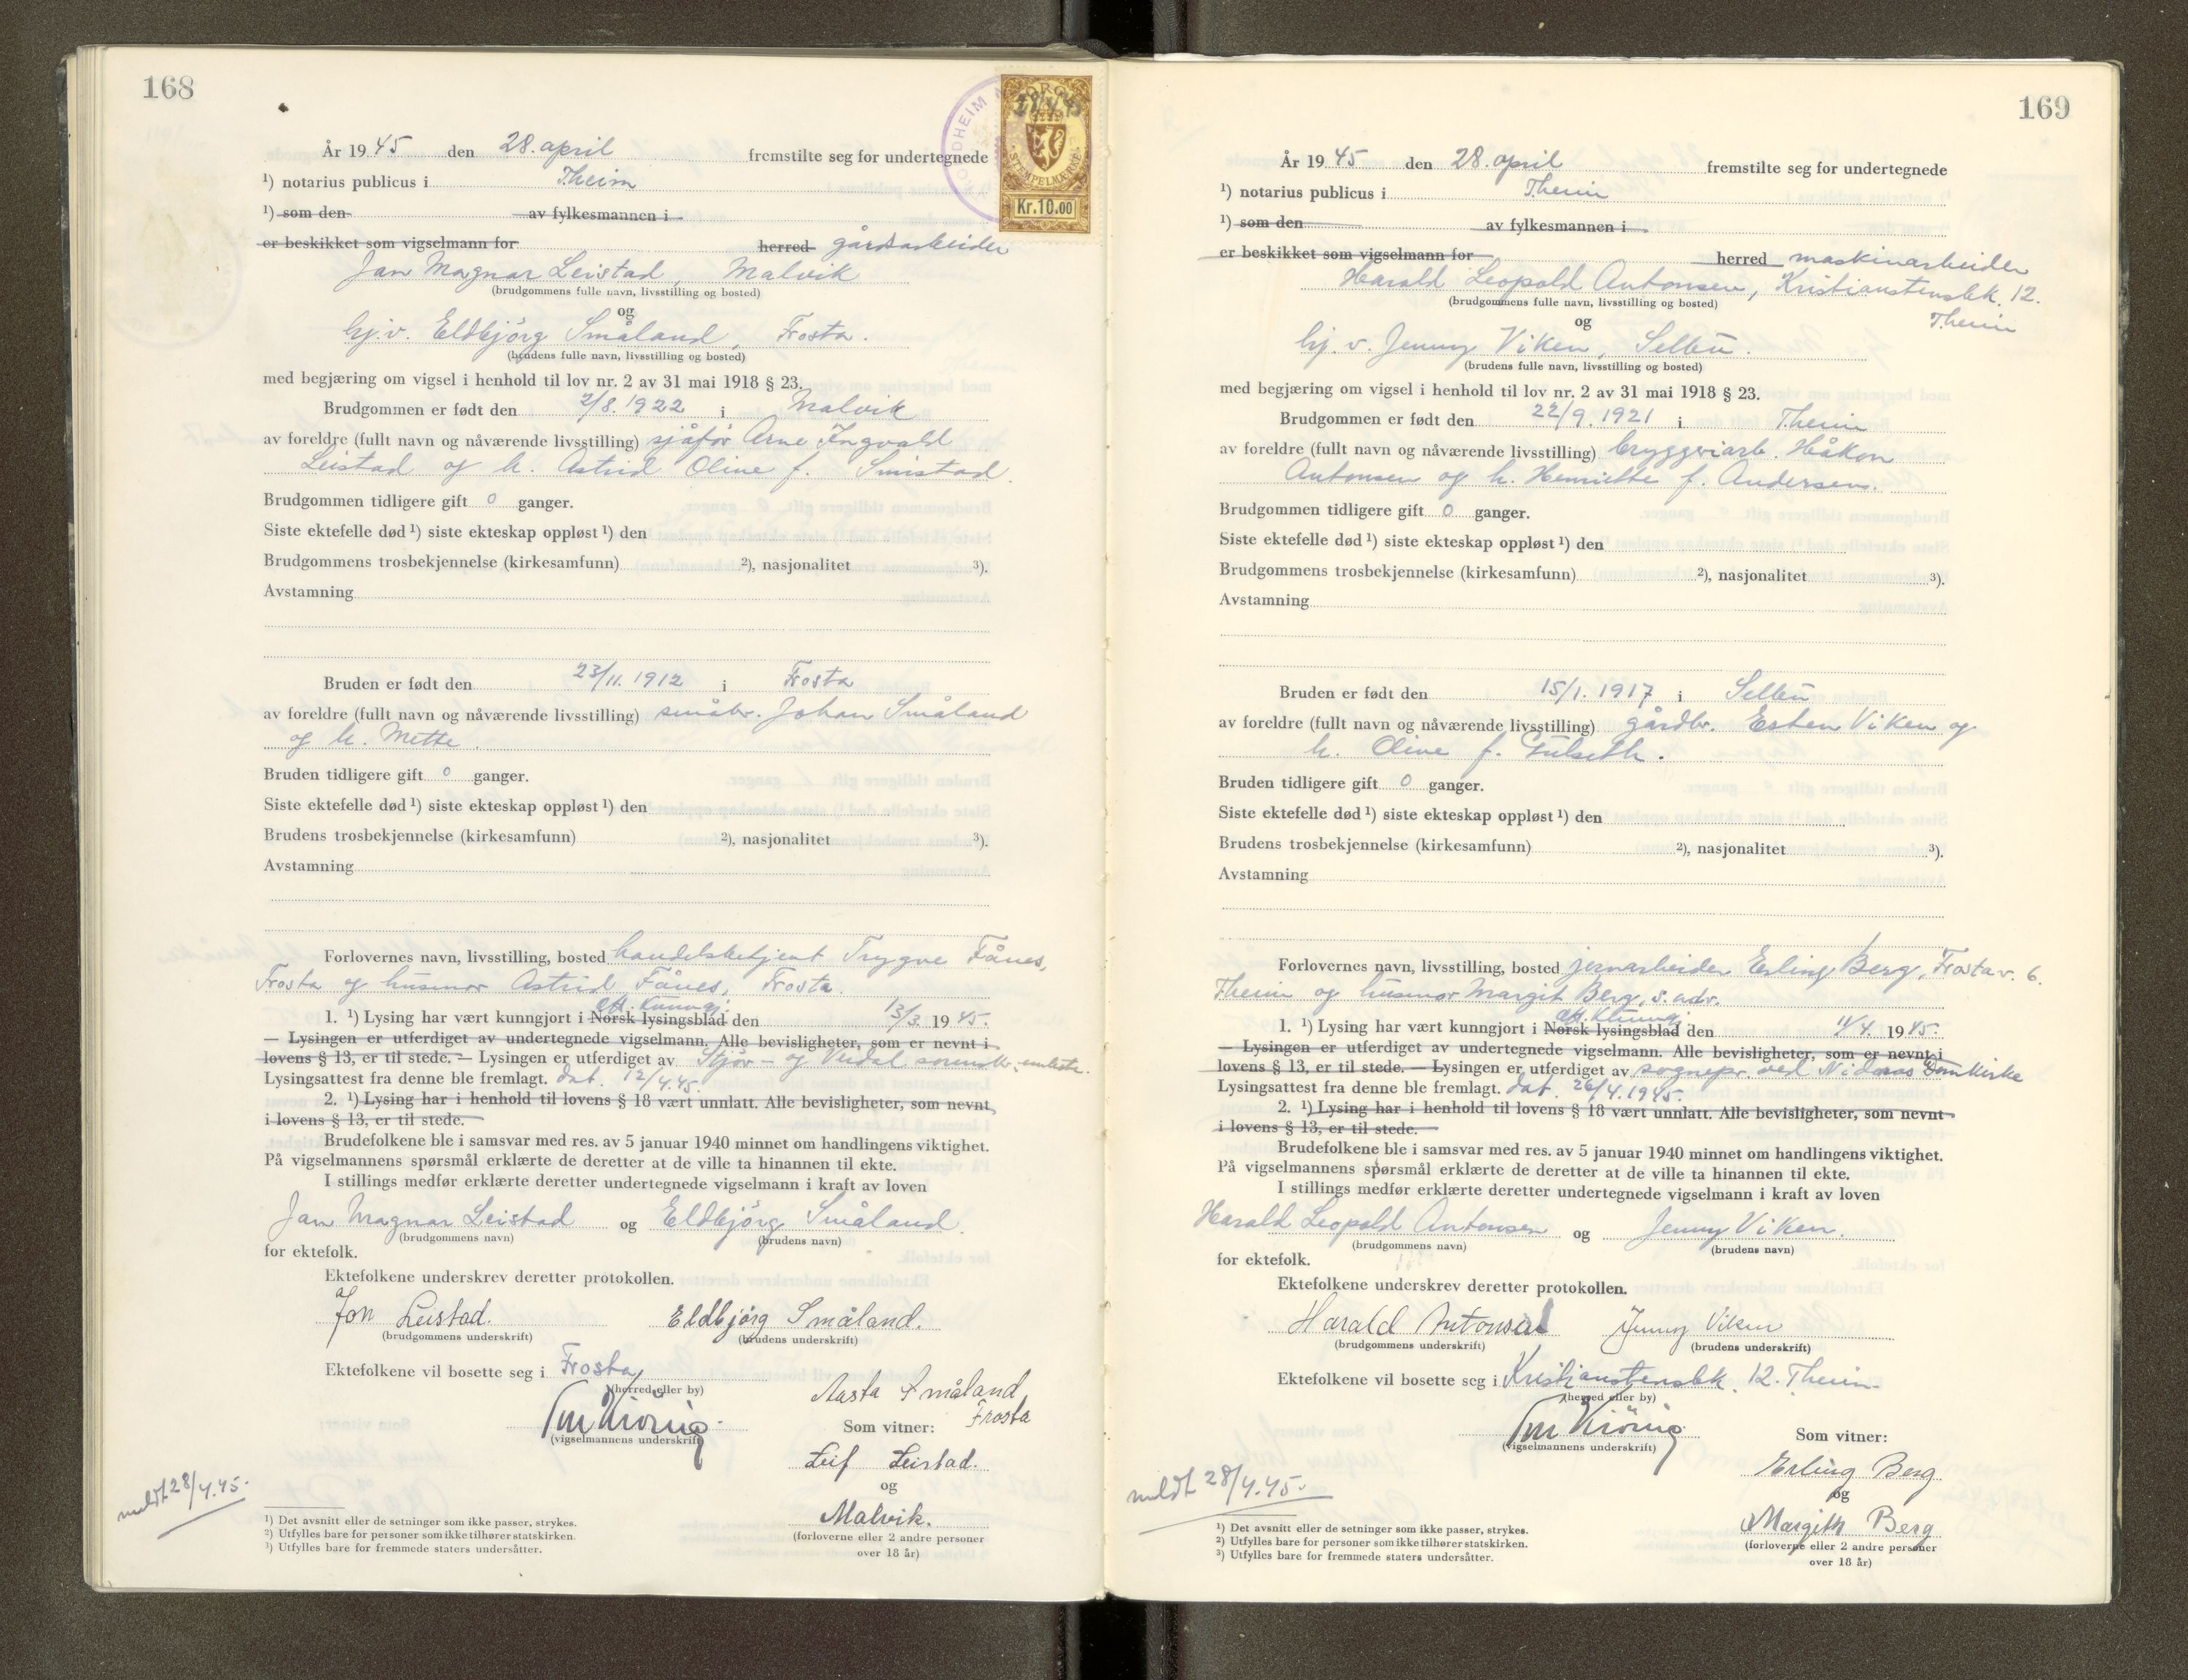 168
År 1945 den 28. april fremstilte seg for undertegnede
¹) notarius publicus i T.heim
¹) som den av fylkesmannen i
er beskikket som vigselmann for herred gårdsarbeider
Jan Magnar Leistad, Malvik
(brudgommens fulle navn, livsstilling og bosted)
og
hj.v. Eldbjörg Småland, Frosta.
(brudens fulle navn, livsstilling og bosted)
med begjæring om vigsel i henhold til lov nr. 2 av 31 mai 1918 § 23.
Brudgommen er født den 2/8. 1922 i Malvik
av foreldre (fullt navn og nåværende livsstilling) sjåför Arne Ingvald
Leistad og h. Astrid Oline f. Smistad.
Brudgommen tidligere gift 0 ganger.
Siste ektefelle død ¹) siste ekteskap oppløst ¹) den
Brudgommens trosbekjennelse (kirkesamfunn) ²), nasjonalitet ³).
Avstamning
Bruden er født den 23/11. 1912 i Frosta
av foreldre (fullt navn og nåværende livsstilling) småbr. Johan Småland
og h. Mette.
Bruden tidligere gift 0 ganger.
Siste ektefelle død ¹) siste ekteskap oppløst ¹) den
Brudens trosbekjennelse (kirkesamfunn) ²), nasjonalitet ³).
Avstamning
Forlovernes navn, livsstilling, bosted handelsbetjent Trygve Fånes,
Frosta og husmor Astrid Fånes, Frosta.
off. kunngj.
1. ¹) Lysing har vært kunngjort i Norsk lysingsblad den 13/3. 1945.
— Lysingen er utferdiget av undertegnede vigselmann. Alle bevisligheter, som er nevnt i
lovens § 13, er til stede. — Lysingen er utferdiget av Stjör- og Verdal sorenskr. embete.
Lysingsattest fra denne ble fremlagt. dat. 12/4.45.
2. ¹) Lysing har i henhold til lovens § 18 vært unnlatt. Alle bevisligheter, som nevnt
i lovens § 13, er til stede.
Brudefolkene ble i samsvar med res. av 5 januar 1940 minnet om handlingens viktighet.
På vigselmannens spørsmål erklærte de deretter at de ville ta hinannen til ekte.
I stillings medfør erklærte deretter undertegnede vigselmann i kraft av loven
Jan Magnar Leistad og Eldbjörg Småland.
(brudgommens navn) (brudens navn)
for ektefolk.
Ektefolkene underskrev deretter protokollen.
Jan Leistad. Eldbjörg Småland.
(brudgommens underskrift) (brudens underskrift)
Ektefolkene vil bosette seg i Frosta
(herred eller by)
Aasta Småland,
Frosta
Som vitner:
(vigselmannens underskrift)
Leif Leistad.
og
Malvik.
(forloverne eller 2 andre personer
over 18 år)
meldt 28/4.45.
¹) Det avsnitt eller de setninger som ikke passer, strykes.
²) Utfylles bare for personer som ikke tilhører statskirken.
³) Utfylles bare for fremmede staters undersåtter.
NORGE
28/4 45
STEMPELMERKE
Kr.10.00
169
År 1945 den 28. april fremstilte seg for undertegnede
¹) notarius publicus i T.heim
¹) som den av fylkesmannen i
er beskikket som vigselmann for herred maskinarbeider
Harald Leopold Antonsen, Kristianstensbk. 12.
(brudgommens fulle navn, livsstilling og bosted) T.heim
og
hj. v. Jenny Viken, Selbu.
(brudens fulle navn, livsstilling og bosted)
med begjæring om vigsel i henhold til lov nr. 2 av 31 mai 1918 § 23.
Brudgommen er født den 22/9. 1921 i T.heim
av foreldre (fullt navn og nåværende livsstilling) bryggeriarb. Håkon
Antonsen og h. Henriette f. Andersen.
Brudgommen tidligere gift 0 ganger.
Siste ektefelle død ¹) siste ekteskap oppløst ¹) den
Brudgommens trosbekjennelse (kirkesamfunn) ²), nasjonalitet ³).
Avstamning
Bruden er født den 15/1. 1917 i Selbu
av foreldre (fullt navn og nåværende livsstilling) gårdbr. Esten Viken og
h. Oline f. Gulseth.
Bruden tidligere gift 0 ganger.
Siste ektefelle død ¹) siste ekteskap oppløst ¹) den
Brudens trosbekjennelse (kirkesamfunn) ²), nasjonalitet ³).
Avstamning
Forlovernes navn, livsstilling, bosted jernarbeider Erling Berg, Frostav. 6.
T.heim og husmor Margit Berg, s. adr.
off. kunngj.
1. ¹) Lysing har vært kunngjort i Norsk lysingsblad den 11/4. 1945.
— Lysingen er utferdiget av undertegnede vigselmann. Alle bevisligheter, som er nevnt i
lovens § 13, er til stede. — Lysingen er utferdiget av sognepr. ved Nidaros Domkirke
Lysingsattest fra denne ble fremlagt. dat. 26/4.1945.
2. ¹) Lysing har i henhold til lovens § 18 vært unnlatt. Alle bevisligheter, som nevnt
i lovens § 13, er til stede.
Brudefolkene ble i samsvar med res. av 5 januar 1940 minnet om handlingens viktighet.
På vigselmannens spørsmål erklærte de deretter at de ville ta hinannen til ekte.
I stillings medfør erklærte deretter undertegnede vigselmann i kraft av loven
Harald Leopold Antonsen og Jenny Viken.
(brudgommens navn) (brudens navn)
for ektefolk.
Ektefolkene underskrev deretter protokollen.
Harald Antonsen Jenny Viken
(brudgommens underskrift) (brudens underskrift)
Ektefolkene vil bosette seg i Kristianstensbk. 12. T.heim
(herred eller by)
Som vitner:
(vigselmannens underskrift)
Erling Berg
og
Margith Berg
(forloverne eller 2 andre personer
over 18 år)
meldt 28/4.45.
¹) Det avsnitt eller de setninger som ikke passer, strykes.
²) Utfylles bare for personer som ikke tilhører statskirken.
³) Utfylles bare for fremmede staters undersåtter.